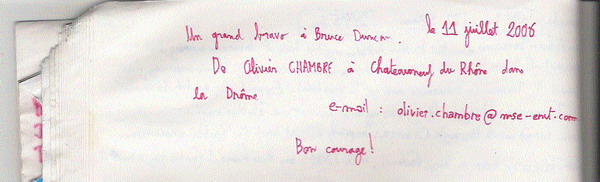 Un grand bravo à Bruce Duncan. le 11 juillet 2006
De Olivier CHAMBRE à Chateauneuf du Rhône dans
la Drôme
e-mail : olivier.chambre@mse-enut.com
Bon courage!